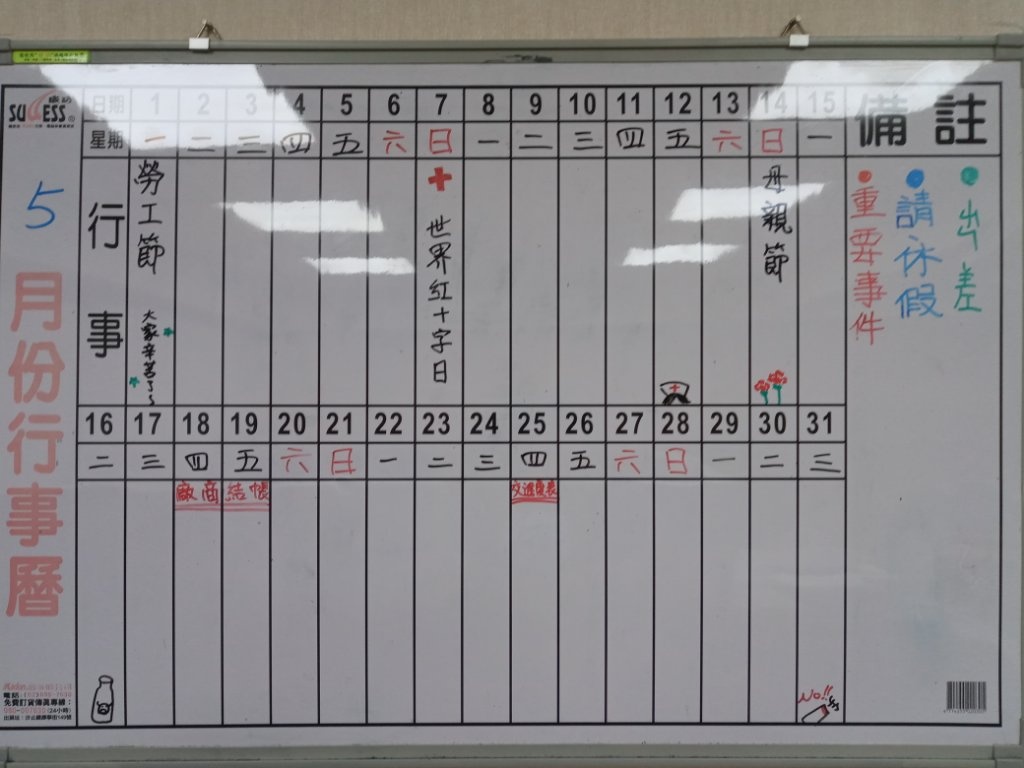 SUCCESS®
日期 1 2 3 4 5 6 7 8 9 10 11 12 13 14 15
備註
星期 一 二 三 四 五 六 日 一 二 三 四 五 六 日 一
5
月份行事曆
行事
勞工節
大家辛苦了~
世界紅十字日
母親節
重要事件
請休假
出差
16 17 18 19 20 21 22 23 24 25 26 27 28 29 30 31
二 三 四 五 六 日 一 二 三 四 五 六 日 一 二 三
廠商結帳
NO!!
免費訂貨傳真專線：
(24小時)